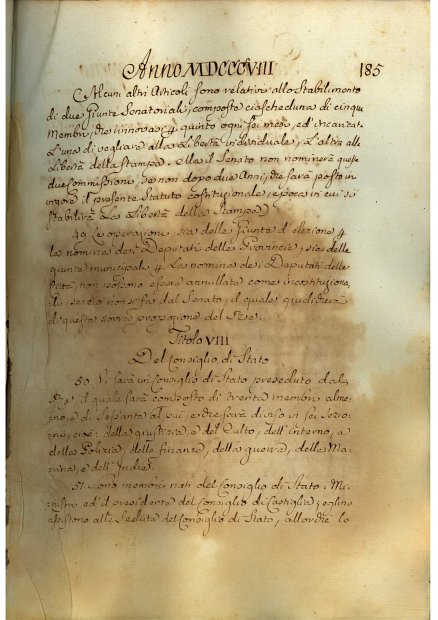 Anno MDCCCVIII 185
(Alcuni altri Articoli sono relativi allo Stabilimento
di due Giunte Senatoriali, composte ciascheduna di cinque
Membri, da rinnovarsi quinto ogni sei mesi, ed incaricate
L'una di vegliare alla Libertà individuale, L'altra alla
Libertà della Stampa. Ma il Senato non nominerà queste
due commissioni, se non dopo due Anni, che sarà posto in
vigore il presente Statuto costituzionale, epoca in cui si
stabilirà La Libertà della Stampa)
49 Le operazioni, sia delle Giunte d'elezione
la nomina de i Deputati delle Provincie, sia delle
giunte municipali La nomina de i Deputati delle
Città, non possono essere annullate come incostituziona
li se ciò non si fa dal Senato, il quale giudicherà
di queste sovra proposizione del Re.
Titolo VIII
Del Consiglio di Stato
50 Vi sarà un Consiglio di Stato preseduto dal
Re, il quale sarà composto di trenta membri alme:
no, e di Sessanta al più, e che sarà diviso in sei Sezio:
ni, cioè: della giustizia, e del Culto, dell'interno, e
della Polizia, delle finanze, della guerra, della Ma:
rina, e dell'Indie.
51 Sono membri nati del Consiglio di Stato i Mi:
nistri ed il presidente del Consiglio di Castiglia; eglino
assistono alle Sedute del Consiglio di Stato, allorchè lo